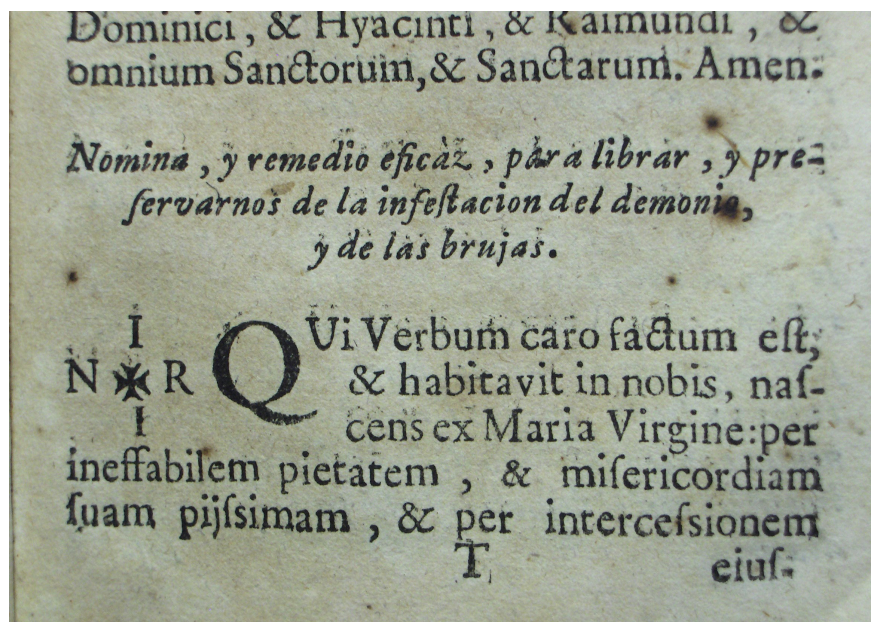 Dominici, & Hyacinti, & Raimundi, &
omnium Sanctorum, & Sanctarum. Amen.
Nomina, y remedio eficàz, para librar, y pre-
ſervarnos de la infeſtacion del demonio,
y de las brujas.
I
N ✠ R
I
QUi Verbum caro factum eſt,
& habitavit in nobis, naſ-
cens ex Maria Virgine: per
ineffabilem pietatem, & miſericordiam
ſuam pijſsimam, & per interceſsionem
T eiuſ-